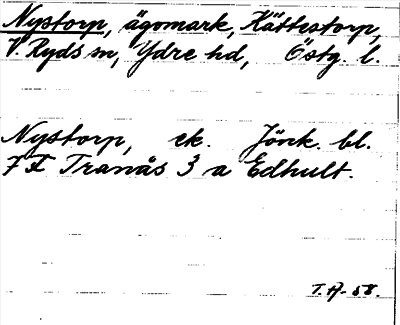 Nystorp, ägomark, Hättestorp,
V. Ryds sn, Ydre hd, Östg. l.
Nystorp, ek. Jönk. bl.
7 F Tranås 3 a Edhult.
T.A-58.